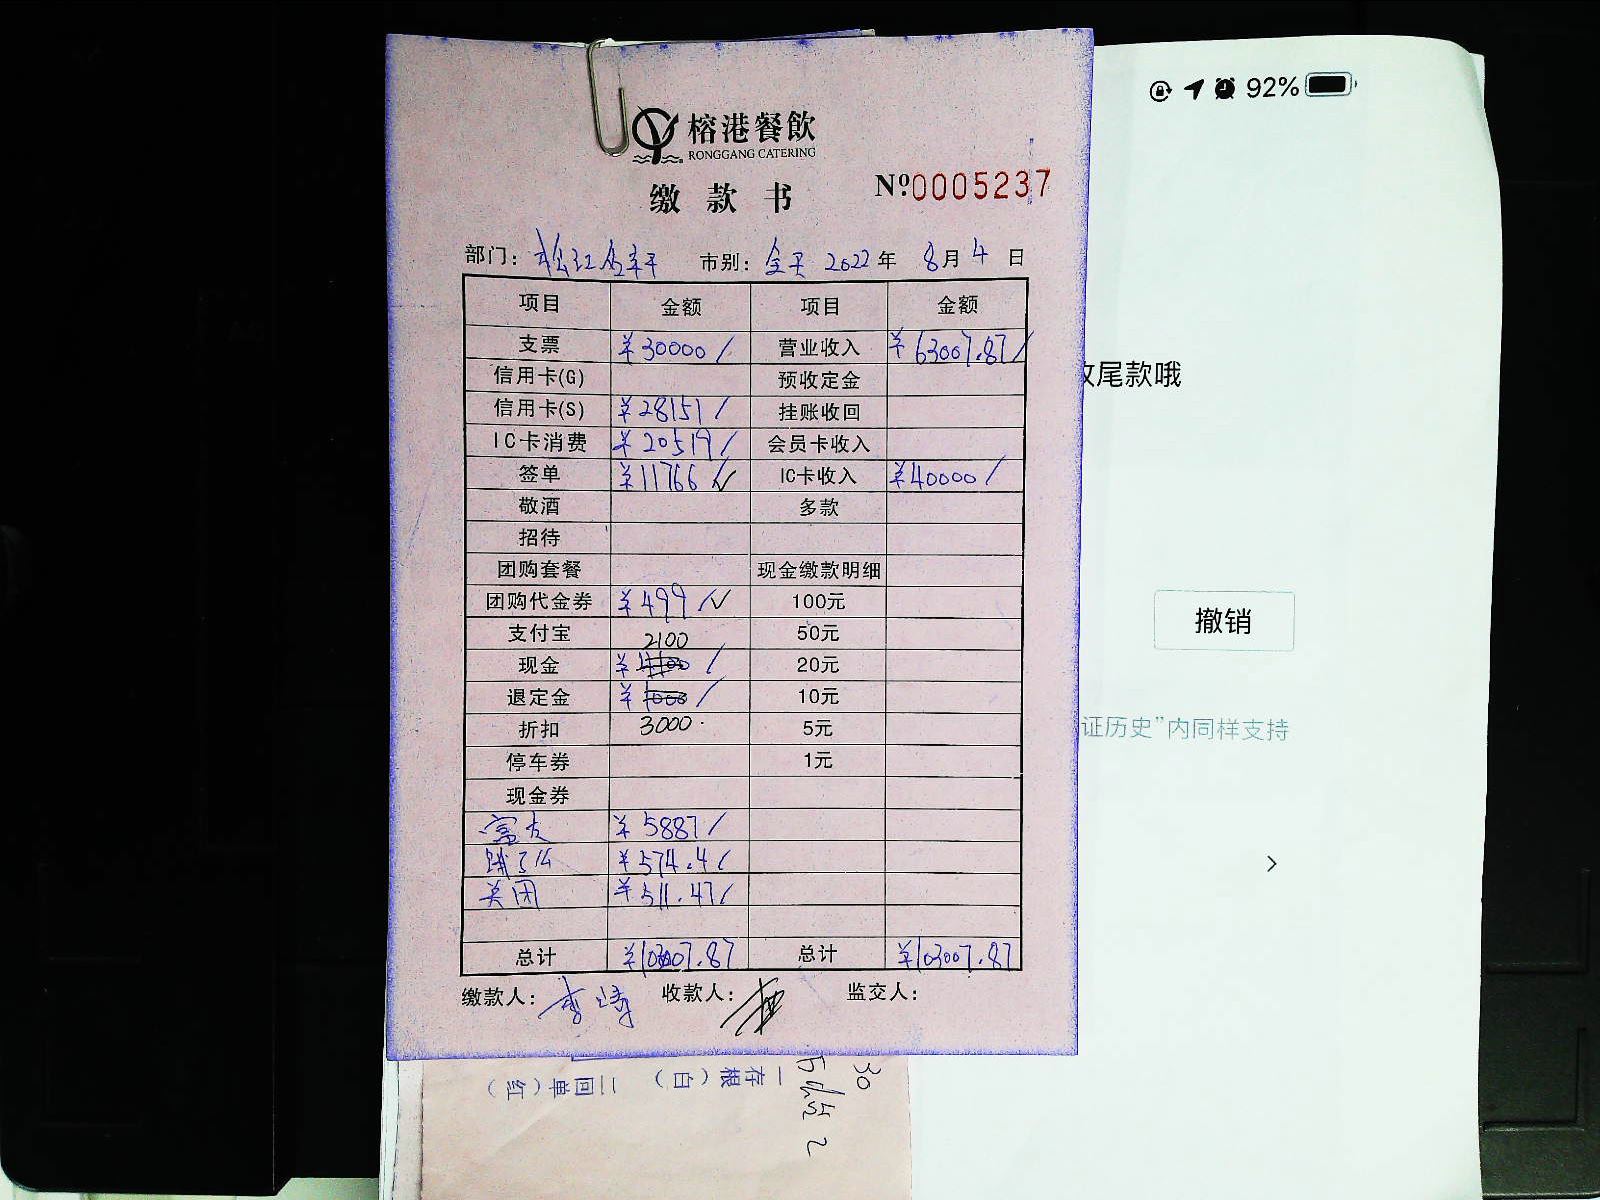 榕港餐飲
RONGGANG CATERING
缴款书
Nº0005237
部门: 松江 市别: 全天 2022年 8月4日
项目 金额 项目 金额
支票 ¥30000/ 营业收入 ¥63007.87/
信用卡(G) 预收定金
信用卡(S) ¥28151/ 挂账收回
IC卡消费 ¥20519/ 会员卡收入
签单 ¥11766/✓ IC卡收入 ¥40000/
敬酒 多款
招待
团购套餐 现金缴款明细
团购代金券 ¥499/✓ 100元
支付宝 2100 50元
现金 ¥ / 20元
退定金 ¥ / 10元
折扣 3000. 5元
停车券 1元
现金券
富友 ¥5887/
饿了么 ¥574.4/
美团 ¥511.47/
总计 ¥103007.87 总计 ¥103007.87
缴款人: 李 收款人: 监交人:
一存根(白) 二回单(红)
30
92%
收尾款哦
撤销
证历史”内同样支持
>